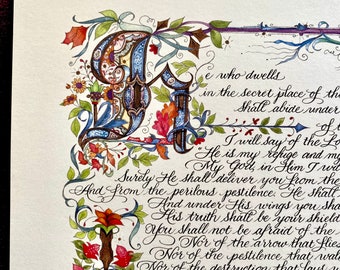 He who dwells
in the secret place of the
Shall abide under
of the
I will say of the Lo
He is my refuge and my
My God, in Him I will
Surely He shall deliver you from the
And from the perilous pestilence. He shall
And under His wings you sha
His truth shall be your shield
You shall not be afraid of the
Nor of the arrow that flies
Nor of the pestilence that walk
Nor of the destruction that lays w